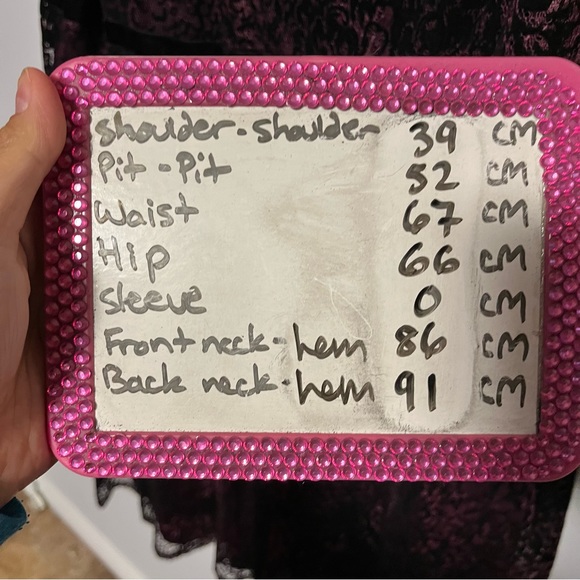 shoulder-shoulder 39 cm
Pit-Pit 52 cm
Waist 67 cm
Hip 66 cm
sleeve 0 cm
Front neck-hem 86 cm
Back neck-hem 91 cm